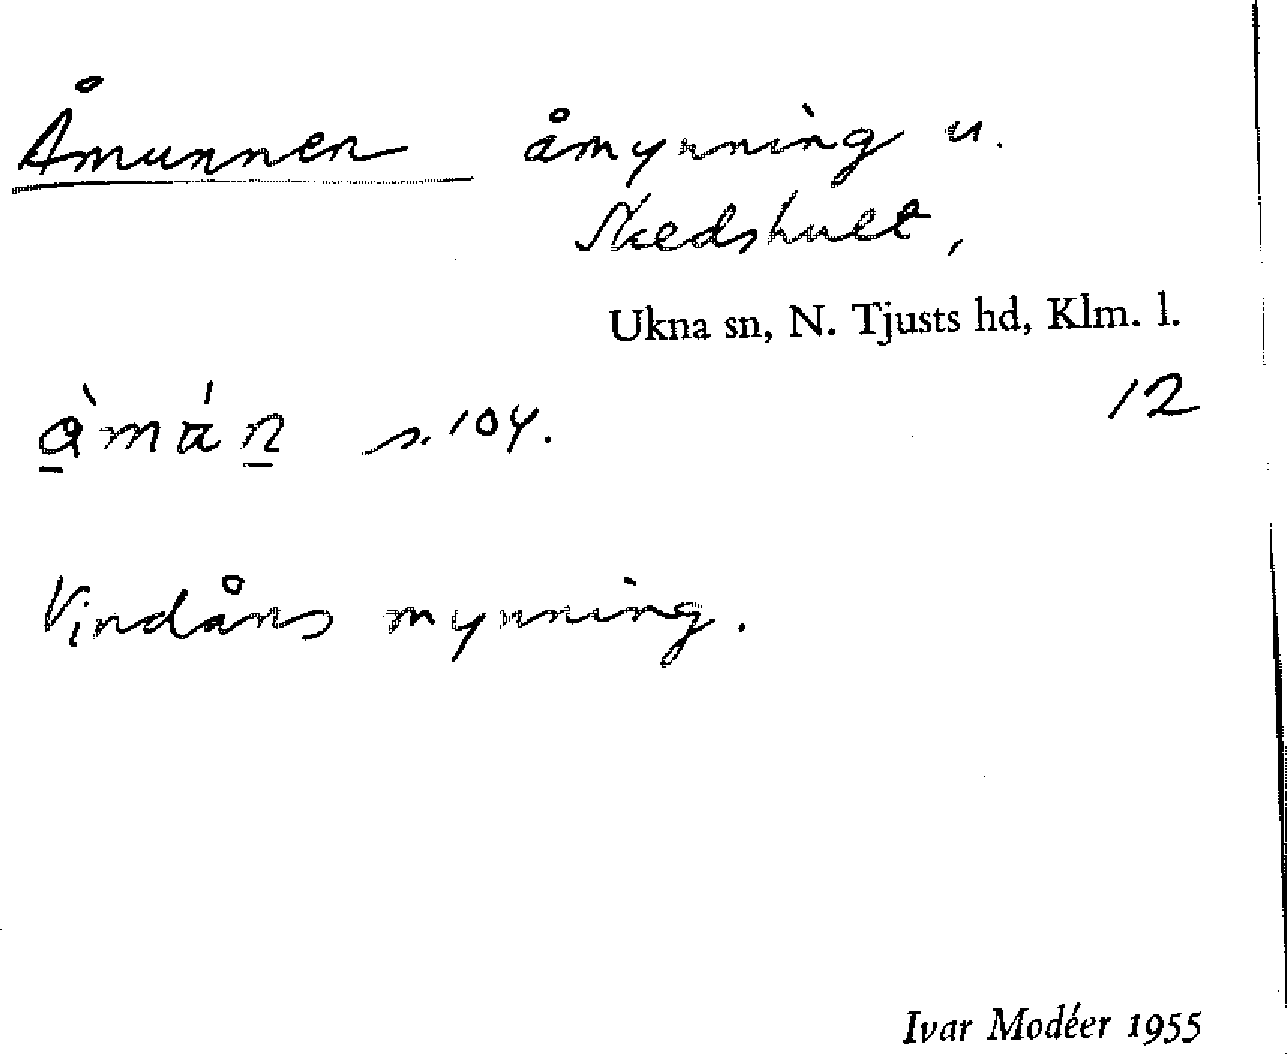 Åmunnen åmynning u.
Skedshult,
Ukna sn, N. Tjusts hd, Klm. l.
s. 104. 12
Vindåns mynning.
Ivar Modéer 1955